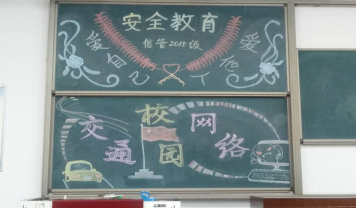 安全教育
信管2015级
爱自己
爱他人
交通
校园
网络